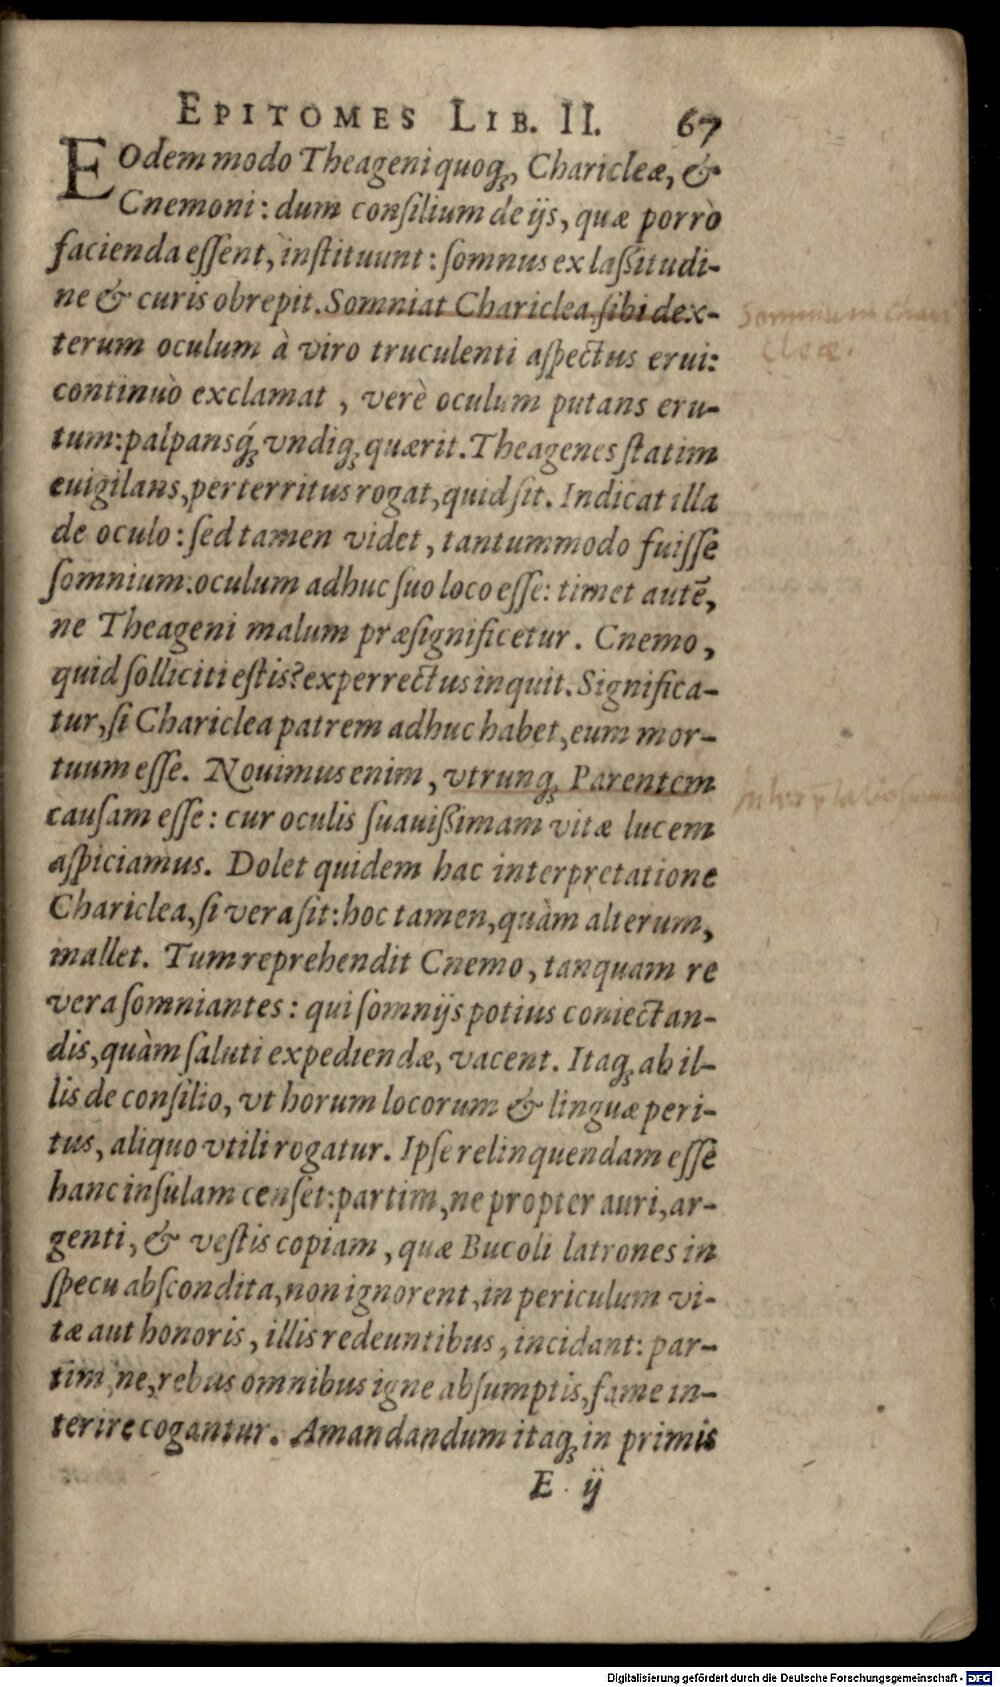 EPITOMES LIB. II. 67
EOdem modo Theageni quoq;, Charicleæ, &
Cnemoni: dum consilium de ijs, quæ porrò
facienda essent, instituunt: somnus ex lassitudi-
ne & curis obrepit. Somniat Chariclea, sibi dex-
terum oculum à viro truculenti aspectus erui:
continuò exclamat, verè oculum putans eru-
tum: palpansq́; vndiq; quærit. Theagenes statim
euigilans, perterritus rogat, quid sit. Indicat illa
de oculo: sed tamen videt, tantummodo fuisse
somnium: oculum adhuc suo loco esse: timet autē,
ne Theageni malum præsignificetur. Cnemo,
quid solliciti estis? experrectus inquit. Significa-
tur, si Chariclea patrem adhuc habet, eum mor-
tuum esse. Nouimus enim, vtrunq; Parentem
causam esse: cur oculis suauissimam vitæ lucem
aspiciamus. Dolet quidem hac interpretatione
Chariclea, si vera sit: hoc tamen, quàm alterum,
mallet. Tum reprehendit Cnemo, tanquam re
vera somniantes: qui somnijs potius coniectan-
dis, quàm saluti expediendæ, vacent. Itaq; ab il-
lis de consilio, vt horum locorum & linguæ peri-
tus, aliquo vtili rogatur. Ipse relinquendam esse
hanc insulam censet: partim, ne propter auri, ar-
genti, & vestis copiam, quæ Bucoli latrones in
specu abscondita, non ignorent, in periculum vi-
tæ aut honoris, illis redeuntibus, incidant: par-
tim, ne, rebus omnibus igne absumptis, fame in-
terire cogantur. Amandandum itaq; in primis
E ij
Somnium Chari
cleæ.
Digitalisierung gefördert durch die Deutsche Forschungsgemeinschaft - DFG